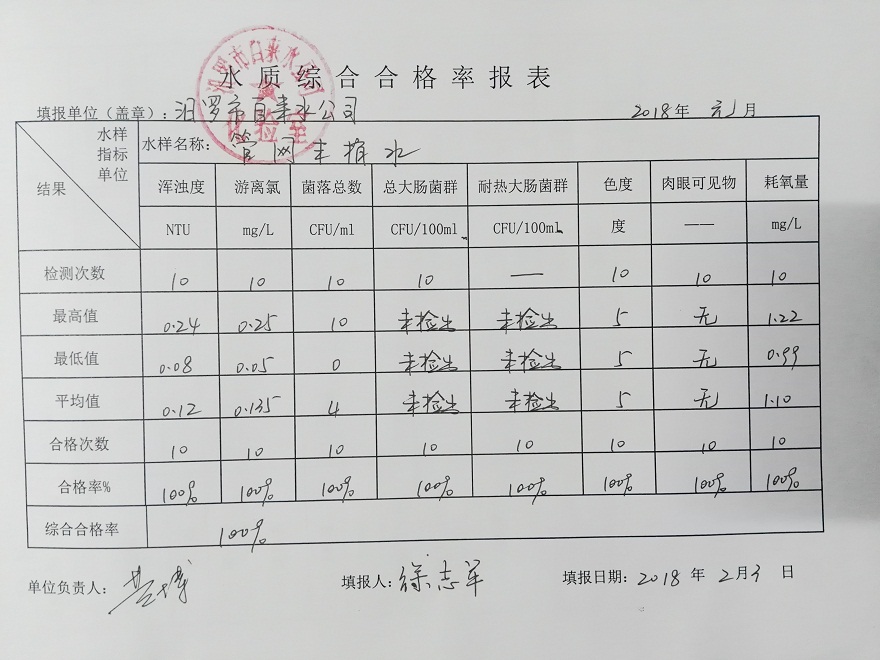 水质综合合格率报表
填报单位（盖章）：汨罗市自来水公司 2018年 元 月
水样
指标
单位
结果
水样名称： 管网末梢水
浑浊度 游离氯 菌落总数 总大肠菌群 耐热大肠菌群 色度 肉眼可见物 耗氧量
NTU mg/L CFU/ml CFU/100ml CFU/100ml 度 —— mg/L
检测次数 10 10 10 10 — 10 10 10
最高值 0.24 0.25 10 未检出 未检出 5 无 1.22
最低值 0.08 0.05 0 未检出 未检出 5 无 0.99
平均值 0.12 0.135 4 未检出 未检出 5 无 1.10
合格次数 10 10 10 10 10 10 10 10
合格率% 100% 100% 100% 100% 100% 100% 100% 100%
综合合格率 100%
单位负责人： 填报人：徐志军 填报日期：2018 年 2月3 日
汨罗市自来水公司
化检室